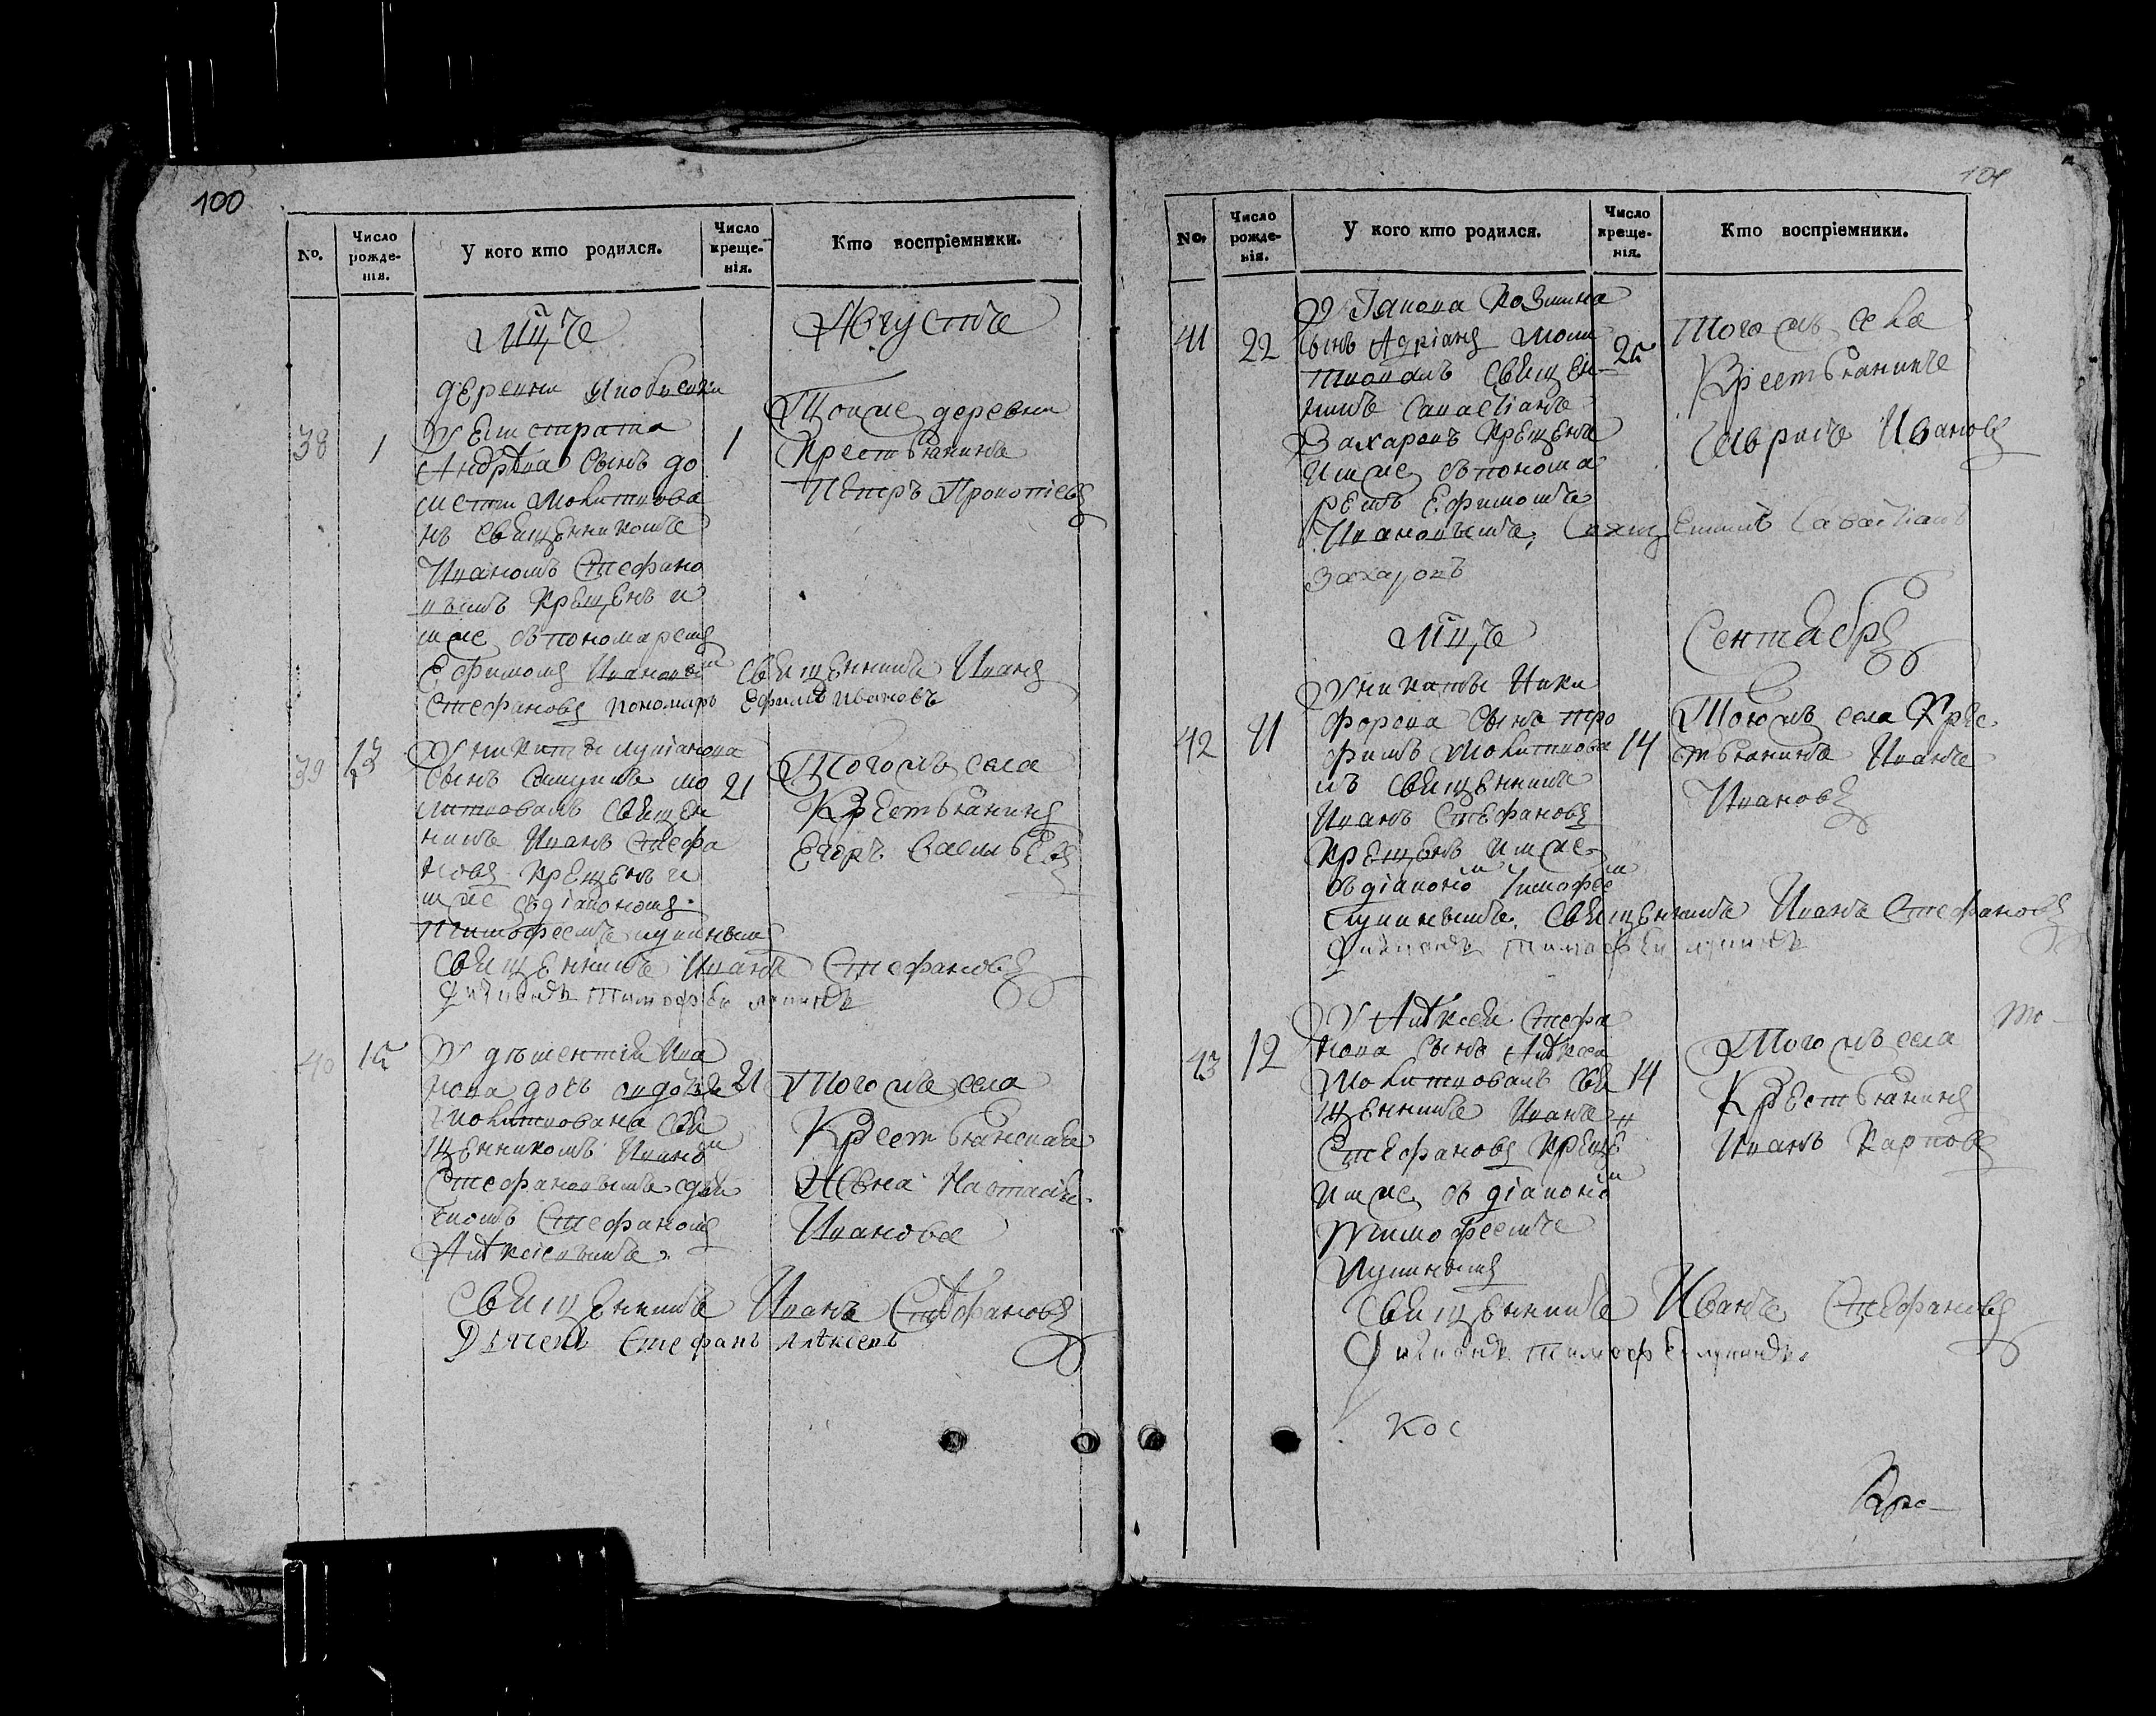 100
No.
Число рожде-нія.
У кого кто родился.
Число креще-нія.
Кто воспріемники.
Мцъ Августъ
деревни
38 1 У Евстрата 1
Андрѣва сынъ до
молитвова
нъ священникомъ
Иваномъ Стефано
вымъ крещенъ и
имже съ пономаремъ
Ефимомъ Ивановым
Тоиже деревни
крестьянинъ
Петръ Прокопіевъ
священникъ Иванъ
Стефановъ пономарь Ефимъ Ивановъ
39 13 У Никиты 21
сынъ мо
литвовалъ священ
никъ Иванъ Стефа
новъ крещенъ и
имже съ діакономъ
Тимофеемъ лупинымъ
Тогожъ села
Крестьянинъ
Егоръ Васильевъ
священникъ Иванъ Стефановъ
Діаконъ Тимофѣи лупинъ
40 15 У дѣментія Ива 21
нова дочь
молитвована свя
щенникомъ Иваном
Стефановымъ
Стефаномъ
Алѣксіевымъ
Тогожъ села
Крестьянская
жена Настасья
Иванова
священникъ Иванъ Стефановъ
Дьячекъ Стефанъ алѣксеевъ
101
No.
Число рожде-нія.
У кого кто родился.
Число креще-нія.
Кто воспріемники.
У Іакова Козмина
41 22 сынъ Адріанъ моли 25
твовалъ священ
никъ Савастіанъ
Захаровъ крещенъ
имже съ понома
ремъ Ефимомъ
Ивановымъ,
Тогожъ села
Крестьянинъ
Гаврилъ Ивановъ
Священникъ Савастіанъ
Захаровъ
Мцъ Сентябрь
У Никиты Ники
42 11 форова сынъ тро 14
фимъ молитвова
лъ священникъ
Иванъ Стефановъ
крещенъ имже
съ діаконом Тимофеем
лупинымъ.
Тогожъ села Крес
тьянинъ Иванъ
Ивановъ
священникъ Иванъ Стефановъ
Діаконъ Тимофѣи лупинъ
У Алѣксѣя Стефа
43 12 нова сынъ Алѣксѣи 14
молитвовалъ свя
щенникъ Иванъ
Стефановъ крещенъ
имже съ діаконом
Тимофеемъ
Лупинымъ
Тогожъ села
Крестьянинъ
Иванъ Карповъ
священникъ Иванъ Стефановъ
Діаконъ Тимофѣи лупинъ.
то-
кос